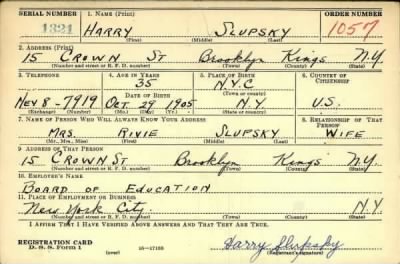 SERIAL NUMBER 1. NAME (Print) ORDER NUMBER
1321 HARRY SLUPSKY 1057
(First) (Middle) (Last)
2. ADDRESS (Print)
15 CROWN ST Brooklyn Kings N.Y.
(Number and street or R. F. D. number) (Town) (County) (State)
3. TELEPHONE 4. AGE IN YEARS 5. PLACE OF BIRTH 6. COUNTRY OF CITIZENSHIP
35 N.Y.C
DATE OF BIRTH (Town or county)
8-7919 Oct 29 1905 N.Y. U.S.
(Exchange) (Number) (Mo.) (Day) (Yr.) (State or country)
7. NAME OF PERSON WHO WILL ALWAYS KNOW YOUR ADDRESS 8. RELATIONSHIP OF THAT PERSON
MRS. RIVIE SLUPSKY WIFE
(Mr., Mrs., Miss) (First) (Middle) (Last)
9. ADDRESS OF THAT PERSON
15 CROWN ST Brooklyn Kings N.Y.
(Number and street or R. F. D. number) (Town) (County) (State)
10. EMPLOYER'S NAME
BOARD OF EDUCATION
11. PLACE OF EMPLOYMENT OR BUSINESS
NEW YORK CITY. N.Y
(Number and street or R. F. D. number) (Town) (County) (State)
I AFFIRM THAT I HAVE VERIFIED ABOVE ANSWERS AND THAT THEY ARE TRUE.
REGISTRATION CARD
D. S. S. FORM 1 (over) 16-17105 Harry Slupsky
(Registrant's signature)